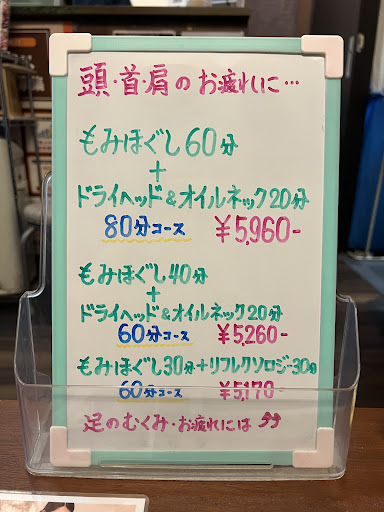 頭・首・肩のお疲れに…
もみほぐし60分
+
ドライヘッド&オイルネック20分
80分コース ¥5,960-
もみほぐし40分
+
ドライヘッド&オイルネック20分
60分コース ¥5,260-
もみほぐし30分+リフレクソロジー30分
60分コース ¥5,170-
足のむくみ・お疲れには